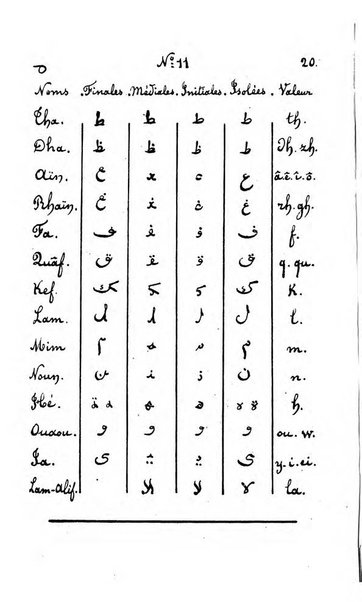 Nº 11 20.
Noms Finales. Médiales. Initiales. Isolées. Valeur
Tha. ط ط ط ط th.
Dha. ظ ظ ظ ظ dh. zh.
Aïn. ع ع ع â.ê.î.ô.
Rhaïn. غ غ غ غ rh. gh.
Fa. ف ف ف ف f.
Quâf. ق ق ق ق q. qu.
Kef. ك ك ك ك K.
Lam. ل ل ل ل l.
Mim م م م م m.
Noun. ن ن ن ن n.
Hé. ة ه ه ه ه ة h.
Ouaou. و و و و ou. w.
Ïa. ى ي ي ي y. i. ei.
Lam-Alif. لا لا لا la.